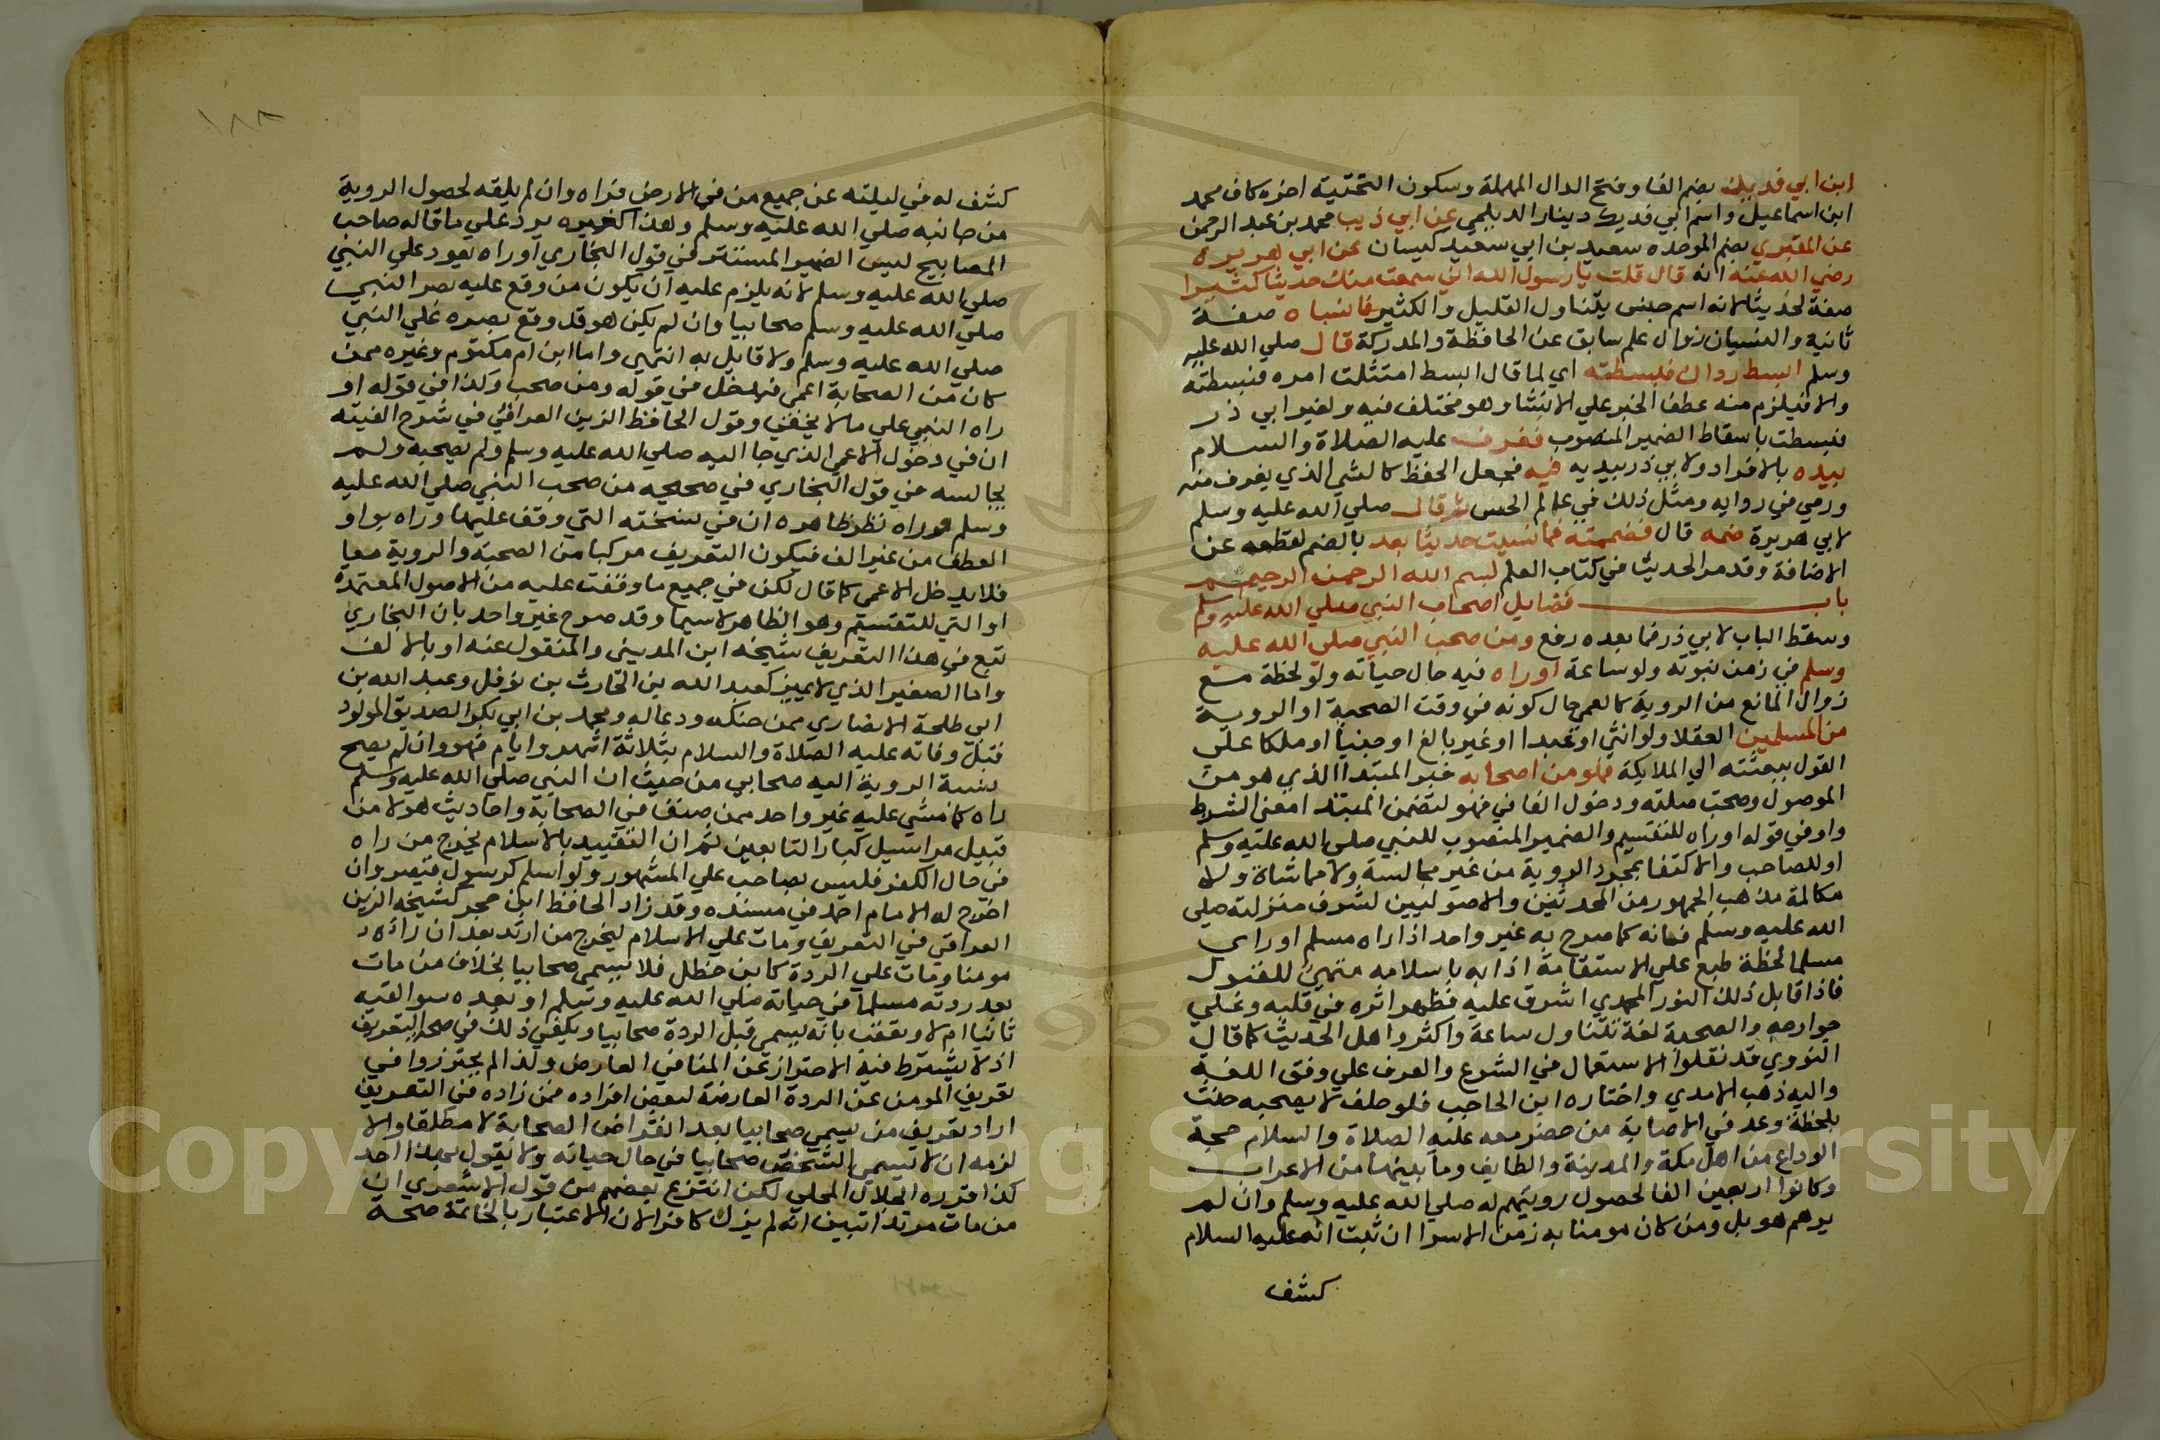 ابن ابي فديك بضم الفا وفتح الدال المهملة وسكون التحتية اخره كاف محمد
ابن اسماعيل واسم ابي فديك دينار الديلمي عن ابي ذيب محمد بن عبد الرحمن
عن المقبري بضم الموحده سعيد بن ابي سعيد كيسان عن ابي هريره
رضي الله عنه انه قال قلت يا رسول الله اني سمعت منك حديثا كثيرا
صفة لحديثا لانه اسم جنس يتناول القليل والكثير فانساه صفة
ثانية والنسيان زوال علم سابق عن الحافظة والمدركة قال صلي الله عليه
وسلم ابسط رداك فبسطته اي لما قال ابسط امتثلت امره فبسطته
والا فيلزم منه عطف الخبر علي الانشا وهو مختلف فيه ولغير ابي ذر
فبسطت باسقاط الضمير المنصوب فغرف عليه الصلاة والسلام
بيده بالافراد ولابي ذر بيديه فيه فجعل الحفظ كالشي الذي يغرف منه
ورمي في روايه ومثل ذلك في عالم الحس ثم قال صلي الله عليه وسلم
لابي هريرة ضمه قال فضممته فما نسيت حديثا بعد بالضم لقطعه عن
الاضافة وقد مر الحديث في كتاب العلم بسم الله الرحمن الرحيم
باب فضايل اصحاب النبي صلي الله عليه وسلم
وسقط الباب لابي ذر فما بعده رفع ومن صحب النبي صلي الله عليه
وسلم في زمن نبوته ولو ساعة اوراه فيه حال حياته ولو لحظة مع
زوال المانع من الروية كالعمي حال كونه في وقت الصحبة او الروية
من المسلمين العقلا ولو انثي او عبدا او غير بالغ او جنيا او ملكا علي
القول ببعثته الي الملايكة فهو من اصحابه خبر المبتدا الذي هو من
الموصول وصحب صلته ودخول الفا في فهو لتضمن المبتدا معني الشرط
واو في قوله اوراه للتقسيم والضمير المنصوب للنبي صلي الله عليه وسلم
او للصاحب والاكتفا بمجرد الروية من غير مجالسة ولا مماشاة ولا
مكالمة مذهب الجمهور من المحدثين والاصوليين لشرف منزلته صلي
الله عليه وسلم فانه كما صرح به غير واحد اذا راه مسلم او راي
مسلما لحظة طبع علي الاستقامة اذ انه باسلامه متهيئ للقبول
فاذا قابل ذلك النور المحمدي اشرق عليه فظهر اثره في قلبه وعلي
جوارحه والصحبة لغة تتناول ساعة واكثر واهل الحديث كما قال
النووي قد نقلوا الاستعمال في الشرع والعرف علي وفق اللغة
واليه ذهب الامدي واختاره ابن الحاجب فلو حلف لا يصحبه حنث
بلحظة وعد في الاصابة من حضر معه عليه الصلاة والسلام حجة
الوداع من اهل مكة والمدينة والطايف وما بينهما من الاعراب
وكانوا اربعين الفا لحصول رويتهم له صلي الله عليه وسلم وان لم
يرهم هو بل ومن كان مومنا به زمن الاسرا ان ثبت انه عليه السلام
كشف
١٨٨
كشف له في ليلته عن جميع من في الارض فراه وان لم يلقه لحصول الروية
من جانبه صلي الله عليه وسلم وهذا كغيره يرد علي ما قاله صاحب
المصابيح ليس الضمير المستتر في قول البخاري او راه يعود علي النبي
صلي الله عليه وسلم لانه يلزم عليه ان يكون من وقع عليه بصر النبي
صلي الله عليه وسلم صحابيا وان لم يكن هو قد وقع بصره علي النبي
صلي الله عليه وسلم ولا قايل به انتهي واما ابن ام مكتوم وغيره ممن
كان من الصحابة اعمي فيدخل في قوله ومن صحب وكذا في قوله او
راه النبي علي ما لا يخفي وقول الحافظ الزين العراقي في شرح الفيته
ان في دخول الاعمي الذي جا اليه صلي الله عليه وسلم ولم يصحبه ولم
يجالسه في قول البخاري في صحيحه من صحب النبي صلي الله عليه
وسلم وراه نظر ظاهره ان في نسخته التي وقف عليها وراه بواو
العطف من غير الف فيكون التعريف مركبا من الصحبة والروية معا
فلا يدخل الاعمي كما قال لكن في جميع ما وقفت عليه من الاصول المعتمدة
او التي للتقسيم وهو الظاهر لا سيما وقد صرح غير واحد بان البخاري
تبع في هذا التعريف شيخه ابن المديني والمنقول عنه او بالالف
واما الصغير الذي لا يميز كعبد الله بن الحارث بن نوفل وعبد الله بن
ابي طلحة الانصاري ممن حنكه ودعا له ومحمد بن ابي بكر الصديق المولود
قبل وفاته عليه الصلاة والسلام بثلاثة اشهر وايام فهو وان لم يصح
نسبة الروية اليه صحابي من حيث ان النبي صلي الله عليه وسلم
راه كما مشي عليه غير واحد ممن صنف في الصحابة واحاديث هولا من
قبيل مراسيل كبار التابعين ثم ان التقييد بالاسلام يخرج من راه
في حال الكفر فليس بصاحب علي المشهور ولو اسلم كرسول قيصر وان
اخرج له الامام احمد في مسنده وقد زاد الحافظ ابن حجر كشيخه الزين
العراقي في التعريف ومات علي الاسلام ليخرج من ارتد بعد ان راه
مومنا ومات علي الردة كابن خطل فلا يسمي صحابيا بخلاف من مات
بعد ردته مسلما في حياته صلي الله عليه وسلم او بعده سوا لقيه
ثانيا ام لا وتعقب بانه يسمي قبل الردة صحابيا ويكفي ذلك في صحة التعريف
اذ لا يشترط فيه الاحتراز عن المنافي العارض ولذا لم يحترزوا في
تعريف المومن عن الردة العارضة لبعض افراده فمن زاده في التعريف
اراد تعريف من يسمي صحابيا بعد انقراض الصحابة لا مطلقا والا
لزمه ان لا يسمي الشخص صحابيا في حال حياته ولا يقول بهذا احد
كذا قرره الجلال المحلي لكن انتزع بعضهم من قول الاشعري ان
من مات مرتدا تبين انه لم يزل كافرا لان الاعتبار بالخاتمة صحة
Copyright © King Saud University